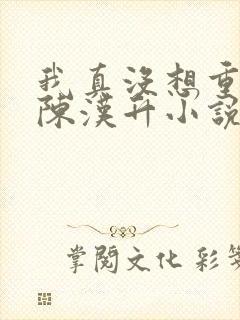 我真沒想重
陳漢升小說
掌閱文化 彩